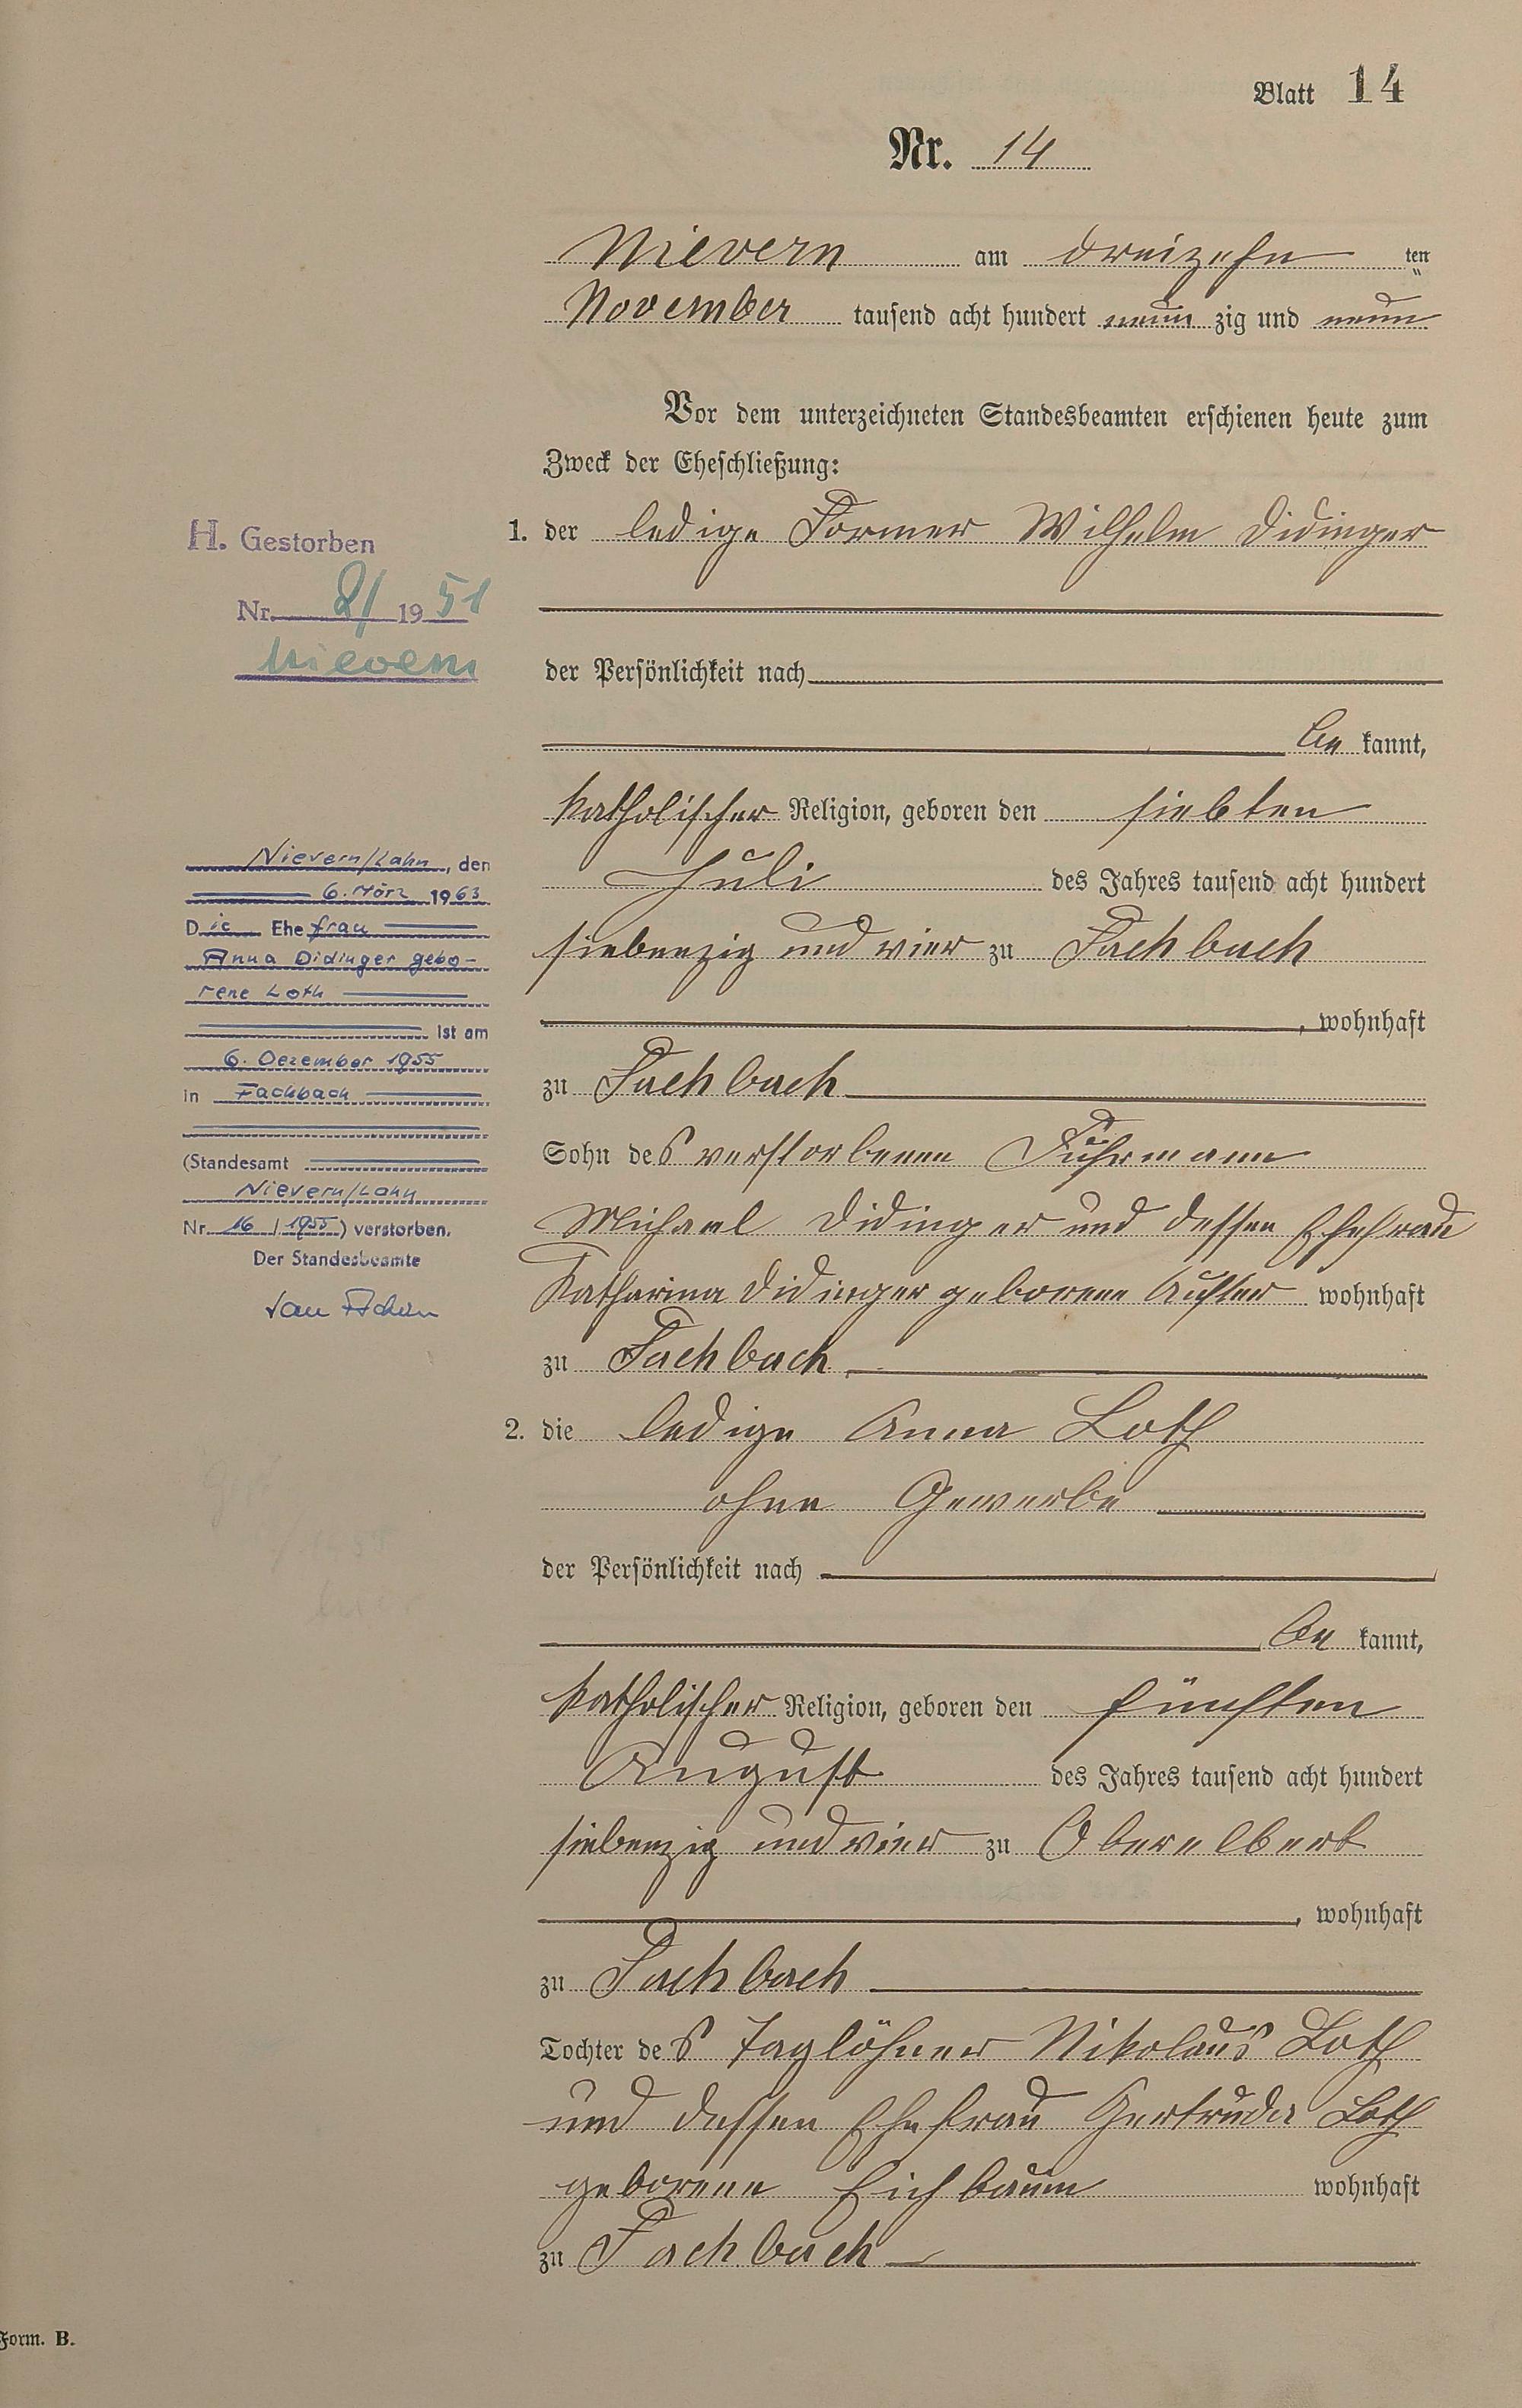 Blatt 14
Nr. 14
Nievern am dreizehn ten
November tausend acht hundert neun zig und neun
Vor dem unterzeichneten Standesbeamten erschienen heute zum
Zweck der Eheschließung:
1. der ledige Former Wilhelm Didinger
der Persönlichkeit nach
be kannt,
katholischer Religion, geboren den siebten
Juli des Jahres tausend acht hundert
siebenzig und vier zu Fachbach
, wohnhaft
zu Fachbach
Sohn des verstorbenen Fuhrmann
Michael Didinger und dessen Ehefrau
Katharina Didinger geborene wohnhaft
zu Fachbach
2. die ledige Anna Loth
ohne Gewerbe
der Persönlichkeit nach
be kannt,
katholischer Religion, geboren den fünften
August des Jahres tausend acht hundert
siebenzig und vier zu Oberelbert
, wohnhaft
zu Fachbach
Tochter des Taglöhner Nikolaus Loth
und dessen Ehefrau Gertruda Loth
geborene Eichbaum wohnhaft
zu Fachbach
H. Gestorben
Nr. 2/ 19 51
Nievern
Nievern/Lahn, den
6. März 1963
Die Ehefrau
Anna Didinger gebo-
rene Loth
ist am
6. Dezember 1955
in Fachbach
(Standesamt
Nievern/Lahn
Nr. 16 / 1955) verstorben.
Der Standesbeamte
Form. B.